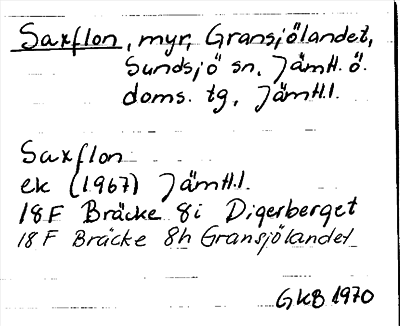 Saxflon, myr, Gransjölandet,
Sundsjö sn, Jämtl. ö.
doms. tg, Jämtl.l.
Saxflon
ek (1967) Jämtl.l.
18F Bräcke 8i Digerberget
18F Bräcke 8h Gransjölandet
GKB 1970